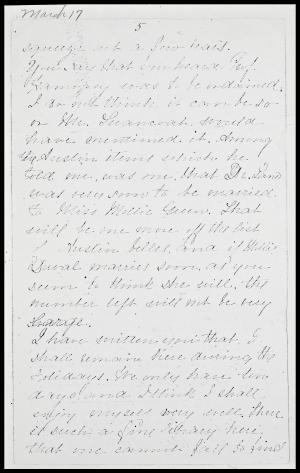 March 17
5
squeeze out a few tears.
You say that you heard Prof.
was to be ordained.
I do not think it can be so
or Mr. would
have mentioned it. Among
the Austin items which he
told me, was one, that Dr.
was very soon to be married
to Miss Mollie Green. That
will be one more off the list
of Austin belles, and if
Duval marries soon, as you
seem to think she will, the
number left will not be very
large.
I have written you that I
shall remain here during the
holidays. We only have ten
days and I think I shall
enjoy myself very well. There
is such a fine library here
that one cannot fail to find